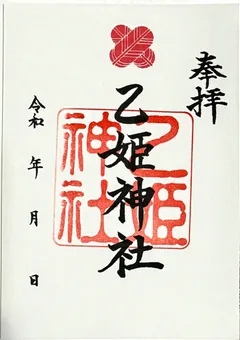 奉拝
乙姫神社
乙姫神社
令和 年 月 日